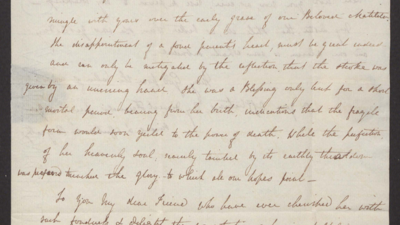 mingle with yours over the early grave of our Beloved Matilda
the disappointment of a fond parent's heart must be great indeed
and can only be mitigated by the reflection that the stroke was
given by an unerring hand. She was a Blessing only lent for a short
mortal period bearing from her birth indications that the fragile
form would soon yield to the power of death, while the perfection
of her heavenly soul, merely tainted by its earthly thraldom
was prepared to the glory to which all our hopes point —
To you My dear Friend who have ever cherished her with
such fondness & delight